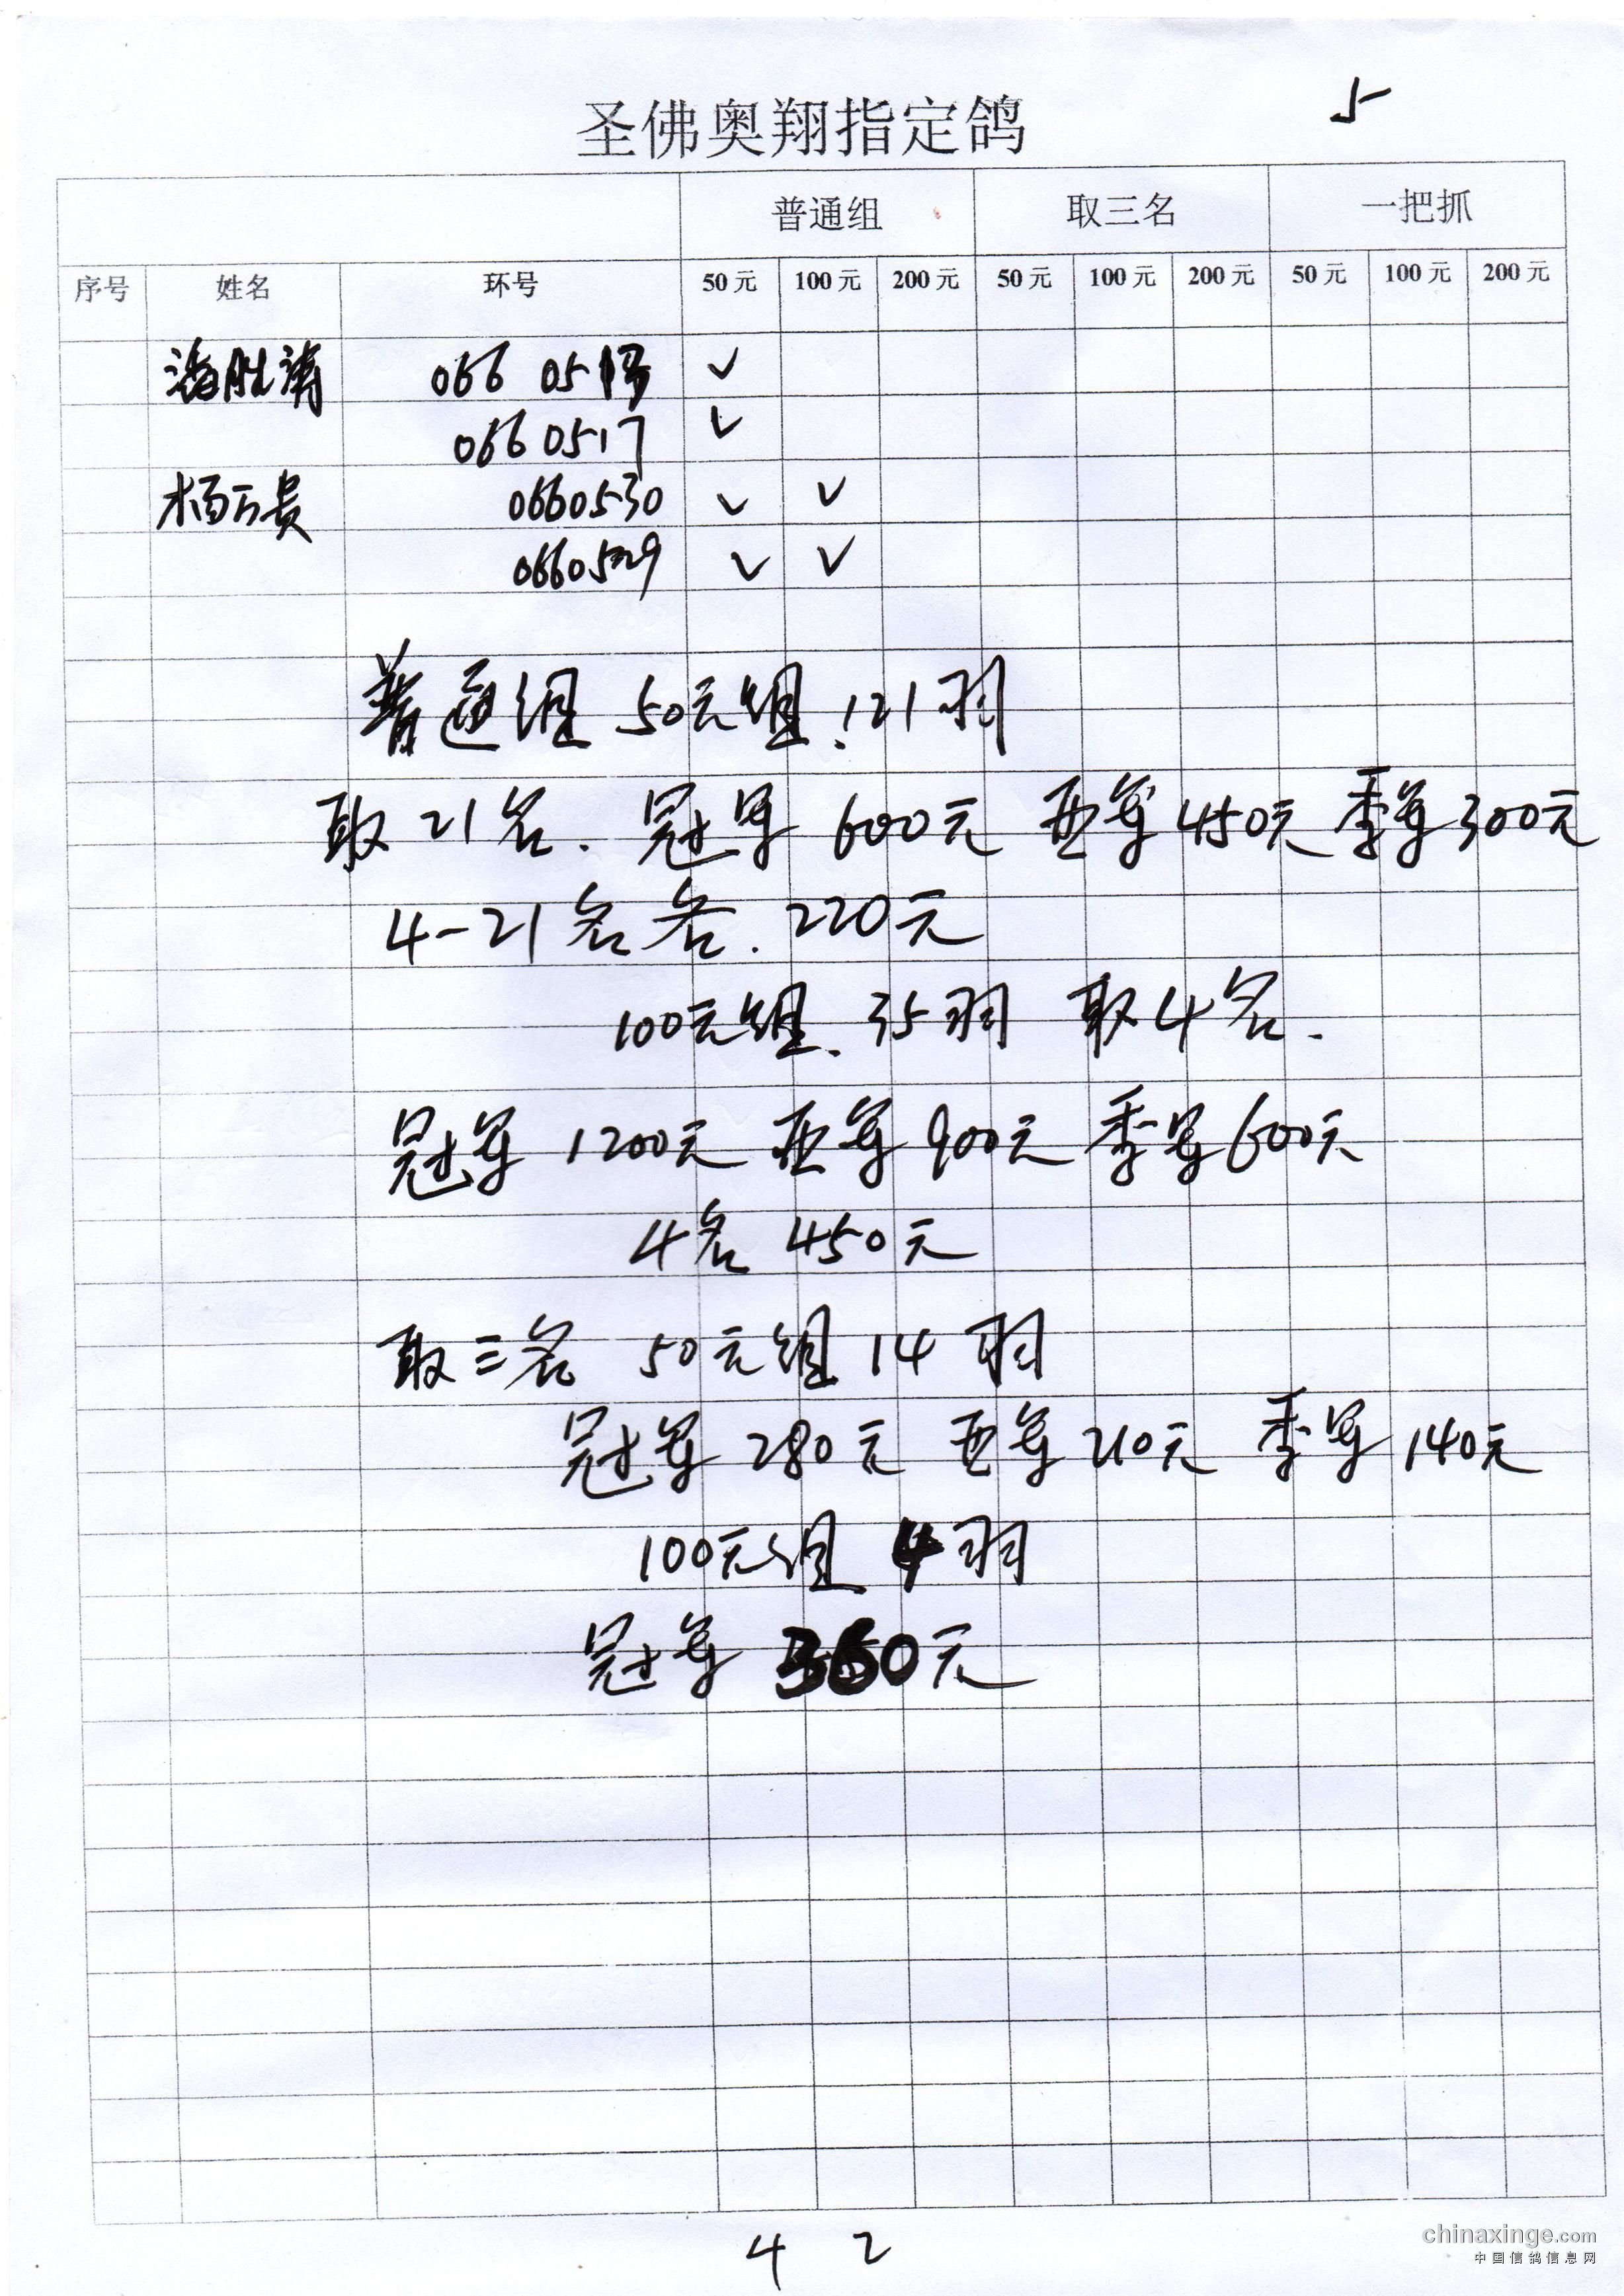 圣佛奥翔指定鸽 5
普通组 取三名 一把抓
序号 姓名 环号 50元 100元 200元 50元 100元 200元 50元 100元 200元
066 05 ✓
0660517 ✓
杨万贵 0660530 ✓ ✓
0660529 ✓ ✓
普通组 50元组.121羽
取21名. 冠军 600元 亚军450元 季军300元
4-21名各.220元
100元组.35羽 取4名.
冠军 1200元 亚军900元 季军600元
4名 450元
取三名 50元组 14羽
冠军 280元 亚军210元 季军140元
100元组 4羽
冠军 360元
4 2
chinaxinge.com
中国信鸽信息网